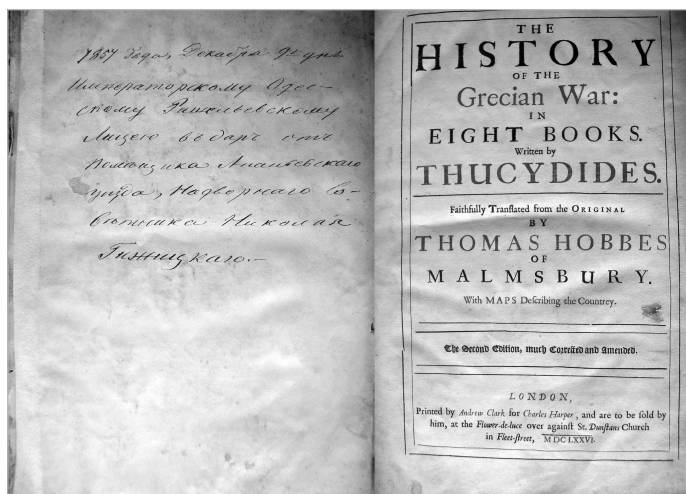 1857 Года, Декабря 9го дня
Императорскому Одес-
скому Ришельевскому
Лицею въ даръ отъ
Помѣщика Ананьевскаго
уѣзда, Надворнаго Со-
вѣтника Николая
Гижицкаго.-
THE
HISTORY
OF THE
Grecian War:
IN
EIGHT BOOKS.
Written by
THUCYDIDES.
Faithfully Tranſlated from the ORIGINAL
BY
THOMAS HOBBES
OF
MALMSBURY.
With MAPS Deſcribing the Countrey.
The Second Edition, much Corrected and Amended.
LONDON,
Printed by Andrew Clark for Charles Harper, and are to be ſold by
him, at the Flower-de-luce over againſt St. Dunſtans Church
in Fleet-ſtreet, MDCLXXVI.